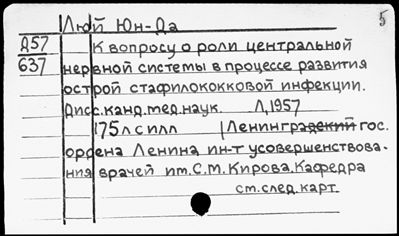 5
Люй Юн-Да
Д57
637
К вопросу о роли центральной
нервной системы в процессе развития
острой стафилококковой инфекции.
Дисс.канд.мед.наук Л,1957
175л с илл Ленинградский гос.
ордена Ленина ин-т усовершенствова-
ния врачей им.С.М.Кирова.Кафедра
см.след.карт.